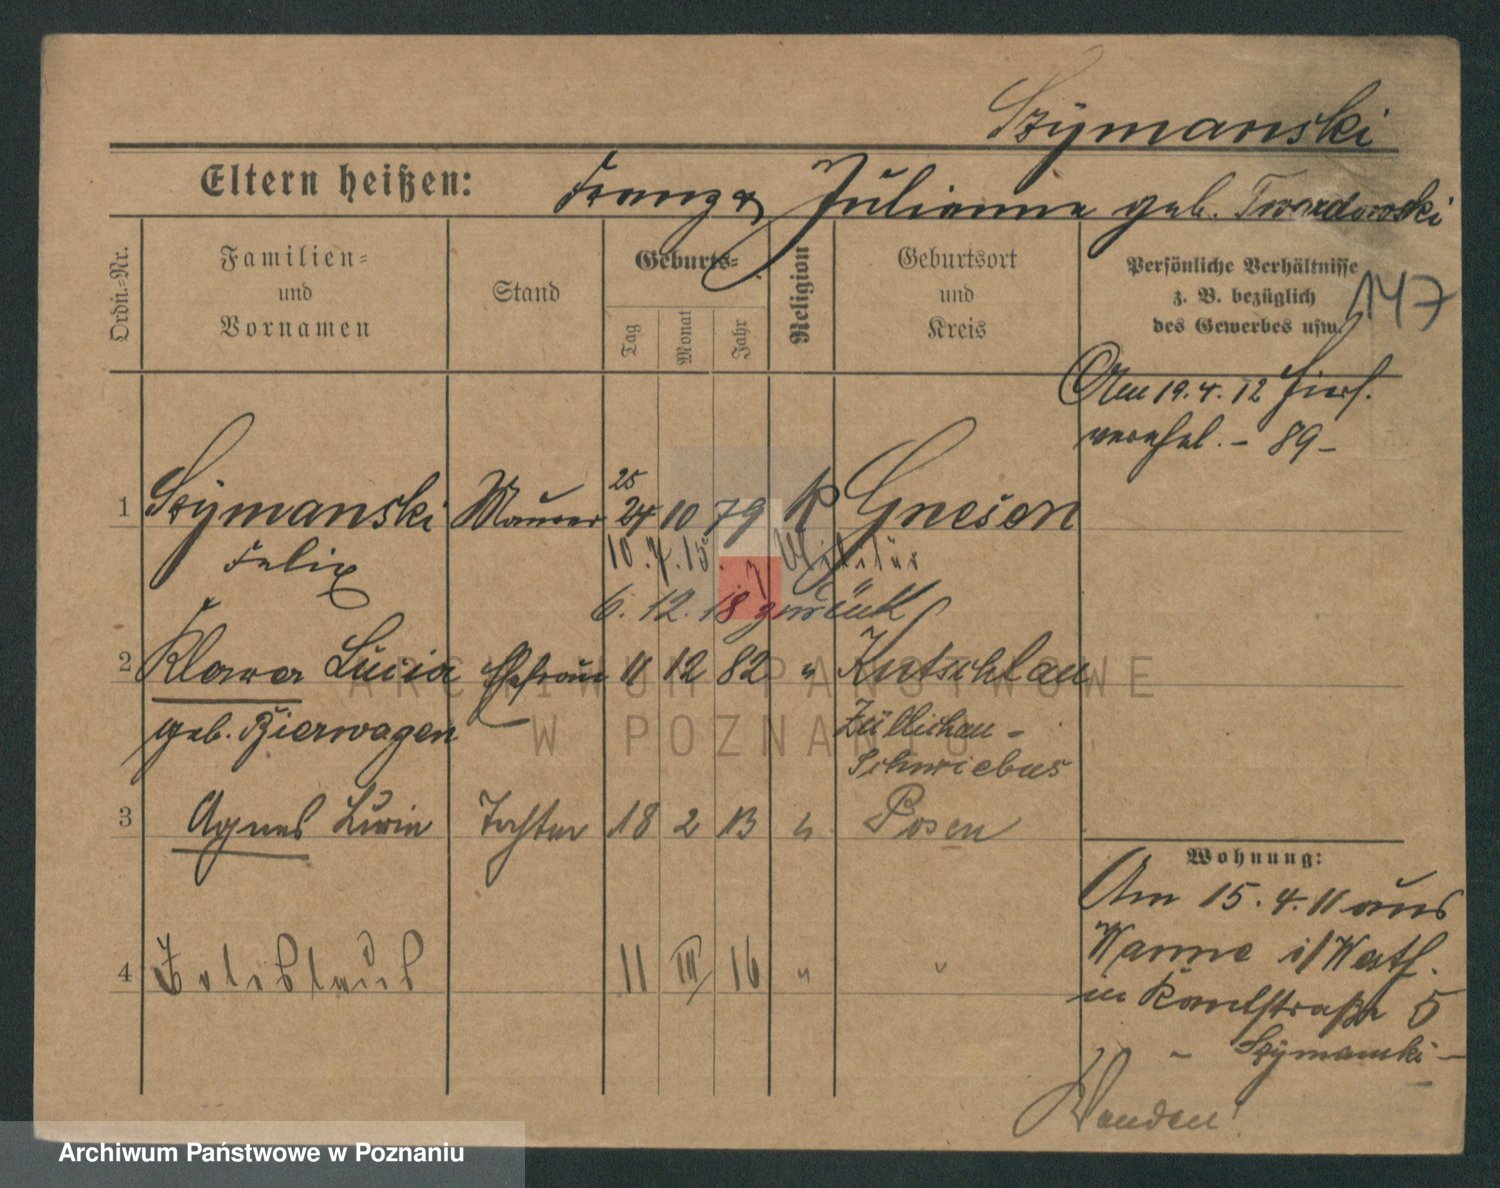 Szymanski
Eltern heißen: Franz & Julianna geb. Twardowski
Ordn.-Nr.
Familien-
und
Vornamen
Stand
Geburts-
Tag
Monat
Jahr
Religion
Geburtsort
und
Kreis
Persönliche Verhältnisse
z. B. bezüglich
des Gewerbes usw.
147
Am 19.4.12 hier
verehel. - 89 -
25
1 Szymanski Maurer 24 10 79 K Gnesen
Felix
10.7.15. z Militär
6.12.18 zurück
2 Klara Lucia Ehefrau 11 12 82 " Kutschlau
geb. Bierwagen Züllichau-
Schwiebus
3 Agnes Tochter 18 2 13 " Posen
4 11 III 16 " "
Wohnung:
Am 15.4.11 aus
Wanne i/Westf.
in 5
- Szymanski -
ARCHIWUM PAŃSTWOWE
W POZNANIU
Archiwum Państwowe w Poznaniu